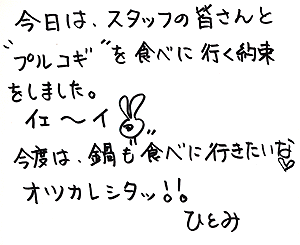 今日は、スタッフの皆さんと
"プルコギ"を食べに行く約束
をしました。
イエ〜イ
今度は、鍋も食べに行きたいな♡
オツカレシタッ!!
ひとみ